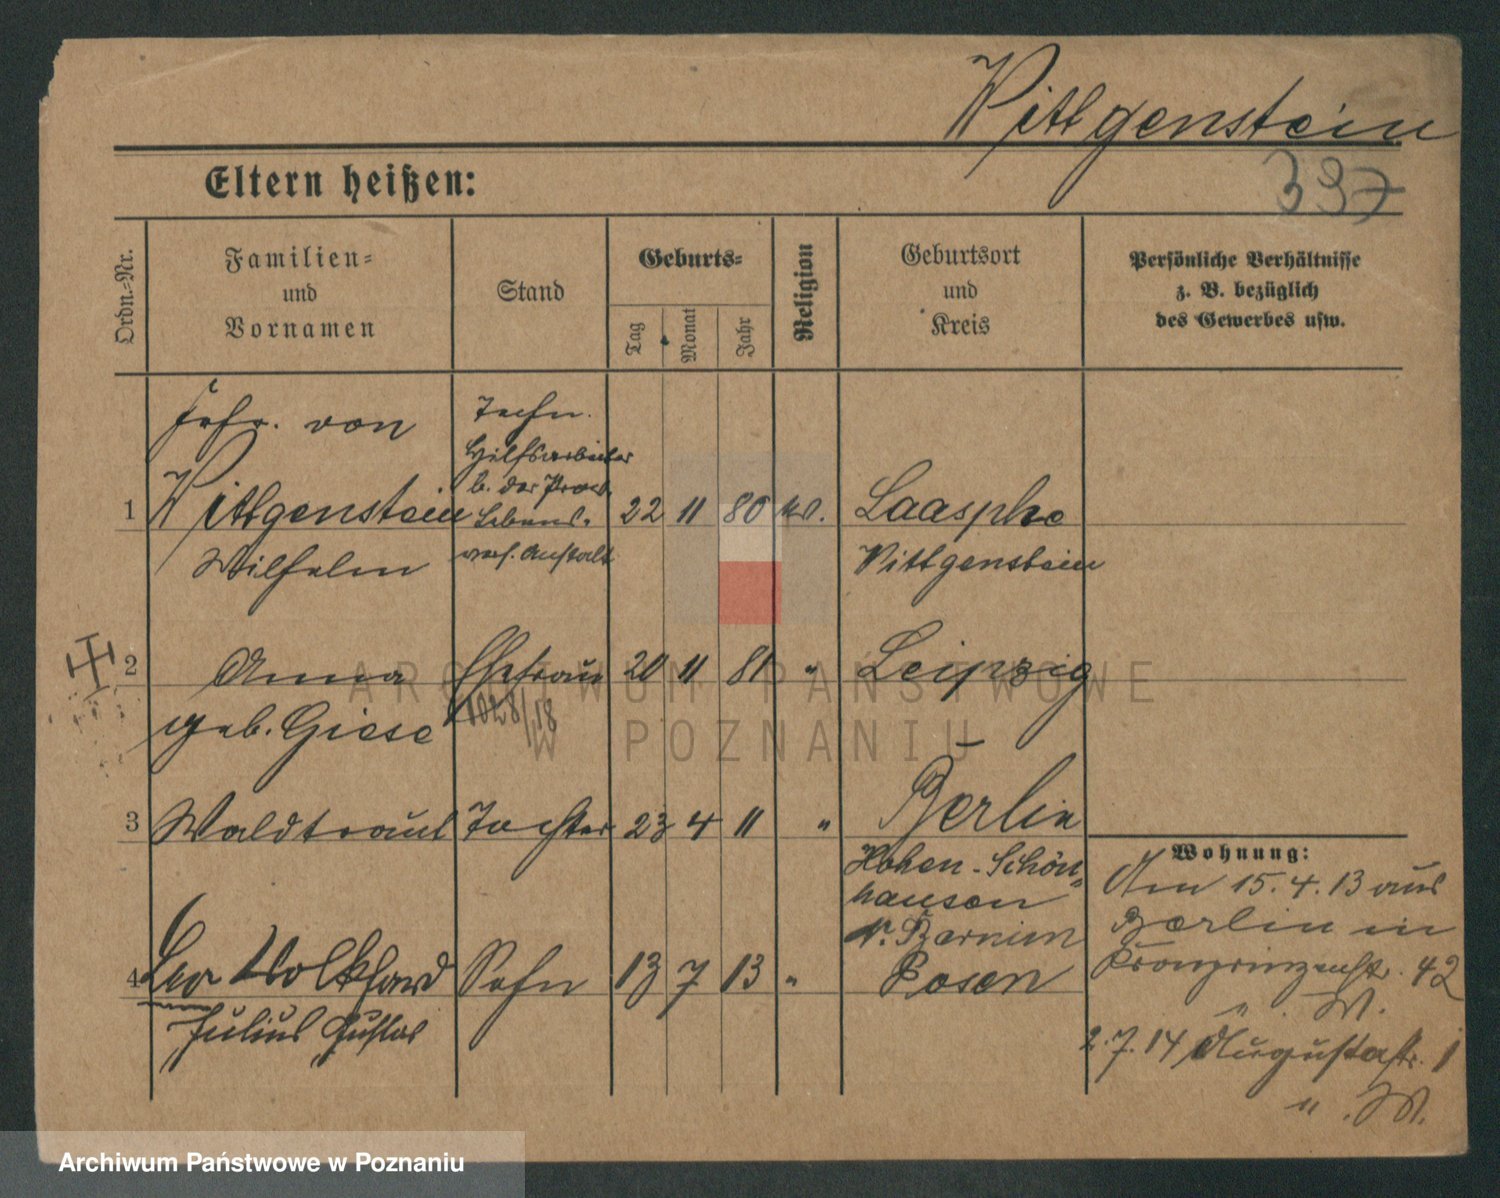 Wittgenstein
Eltern heißen:
397
Ordn.-Nr.
Familien=
und
Vornamen
Stand
Geburts=
Tag
Monat
Jahr
Religion
Geburtsort
und
Kreis
Persönliche Verhältnisse
z. B. bezüglich
des Gewerbes usw.
Frhr. von
1 Wittgenstein
Wilhelm
Techn.
Hilfsarbeiter
b. der Prov.
Lebens-
vers. Anstalt
22 11 80 ev.
Laasphe
Wittgenstein
2 Anna Ehefrau 20 11 81 " Leipzig
geb. Giese
1028/18
3 Waldtraut Tochter 23 4 11 " Berlin
Hohen-Schön-
hausen
N. Barnim
4 Leo Volkhard Sohn 13 7 13 " Posen
Julius Gustav
Wohnung:
Am 15.4.13 aus
Berlin in
Kronprinzenstr. 42
u. W.
2.7.14 Augustastr. 1
u. W.
ARCHIWUM PAŃSTWOWE
W POZNANIU
Archiwum Państwowe w Poznaniu